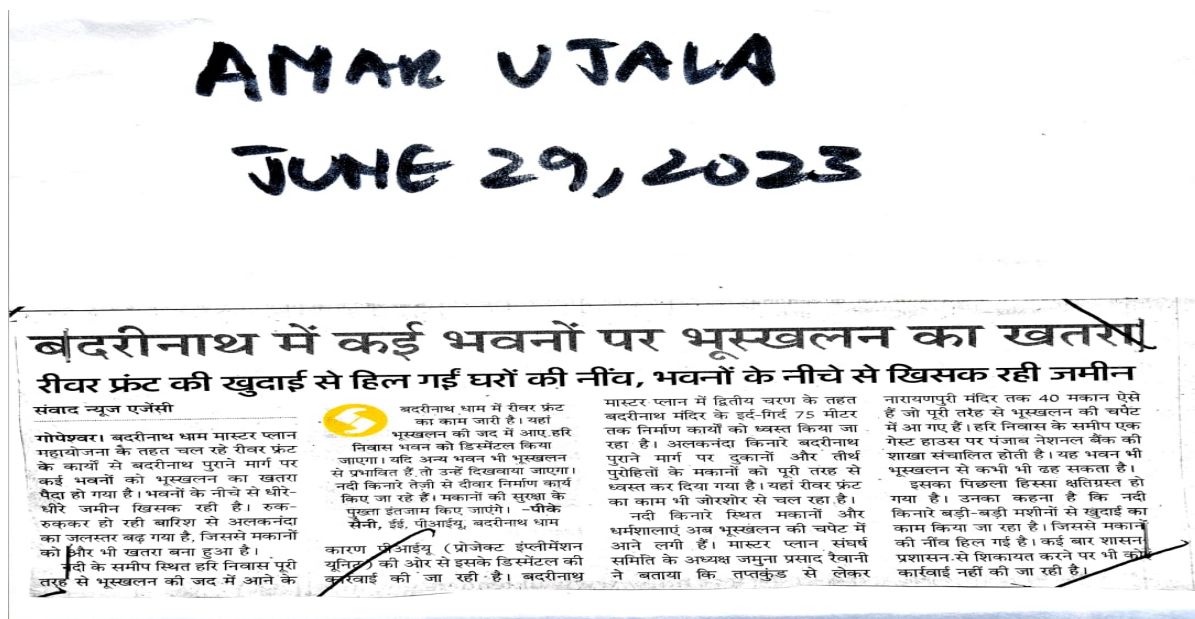 AMAR UJALA
JUNE 29, 2023
बदरीनाथ में कई भवनों पर भूस्खलन का खतरा
रीवर फ्रंट की खुदाई से हिल गईं घरों की नींव, भवनों के नीचे से खिसक रही जमीन
संवाद न्यूज एजेंसी
गोपेश्वर। बदरीनाथ धाम मास्टर प्लान
महायोजना के तहत चल रहे रीवर फ्रंट
के कार्यों से बदरीनाथ पुराने मार्ग पर
कई भवनों को भूस्खलन का खतरा
पैदा हो गया है। भवनों के नीचे से धीरे-
धीरे जमीन खिसक रही है। रुक-
रुककर हो रही बारिश से अलकनंदा
का जलस्तर बढ़ गया है, जिससे मकानों
को और भी खतरा बना हुआ है।
नदी के समीप स्थित हरि निवास पूरी
तरह से भूस्खलन की जद में आने के
बदरीनाथ धाम में रीवर फ्रंट
का काम जारी है। यहां
भूस्खलन की जद में आए हरि
निवास भवन को डिस्मेंटल किया
जाएगा। यदि अन्य भवन भी भूस्खलन
से प्रभावित हैं तो उन्हें दिखवाया जाएगा।
नदी किनारे तेज़ी से दीवार निर्माण कार्य
किए जा रहे हैं। मकानों की सुरक्षा के
पुख्ता इंतजाम किए जाएंगे। -पीके
सैनी, ईई, पीआईयू, बदरीनाथ धाम
कारण पीआईयू (प्रोजेक्ट इंप्लीमेंशन
यूनिट) की ओर से इसके डिस्मेंटल की
कार्रवाई की जा रही है। बदरीनाथ
मास्टर प्लान में द्वितीय चरण के तहत
बदरीनाथ मंदिर के इर्द-गिर्द 75 मीटर
तक निर्माण कार्यों को ध्वस्त किया जा
रहा है। अलकनंदा किनारे बदरीनाथ
पुराने मार्ग पर दुकानों और तीर्थ
पुरोहितों के मकानों को पूरी तरह से
ध्वस्त कर दिया गया है। यहां रीवर फ्रंट
का काम भी जोरशोर से चल रहा है।
नदी किनारे स्थित मकानों और
धर्मशालाएं अब भूस्खलन की चपेट में
आने लगी हैं। मास्टर प्लान संघर्ष
समिति के अध्यक्ष जमुना प्रसाद रैवानी
ने बताया कि तप्तकुंड से लेकर
नारायणपुरी मंदिर तक 40 मकान ऐसे
हैं जो पूरी तरह से भूस्खलन की चपेट
में आ गए हैं। हरि निवास के समीप एक
गेस्ट हाउस पर पंजाब नेशनल बैंक की
शाखा संचालित होती है। यह भवन भी
भूस्खलन से कभी भी ढह सकता है।
इसका पिछला हिस्सा क्षतिग्रस्त हो
गया है। उनका कहना है कि नदी
किनारे बड़ी-बड़ी मशीनों से खुदाई का
काम किया जा रहा है। जिससे मकानों
की नींव हिल गई है। कई बार शासन-
प्रशासन से शिकायत करने पर भी कोई
कार्रवाई नहीं की जा रही है।